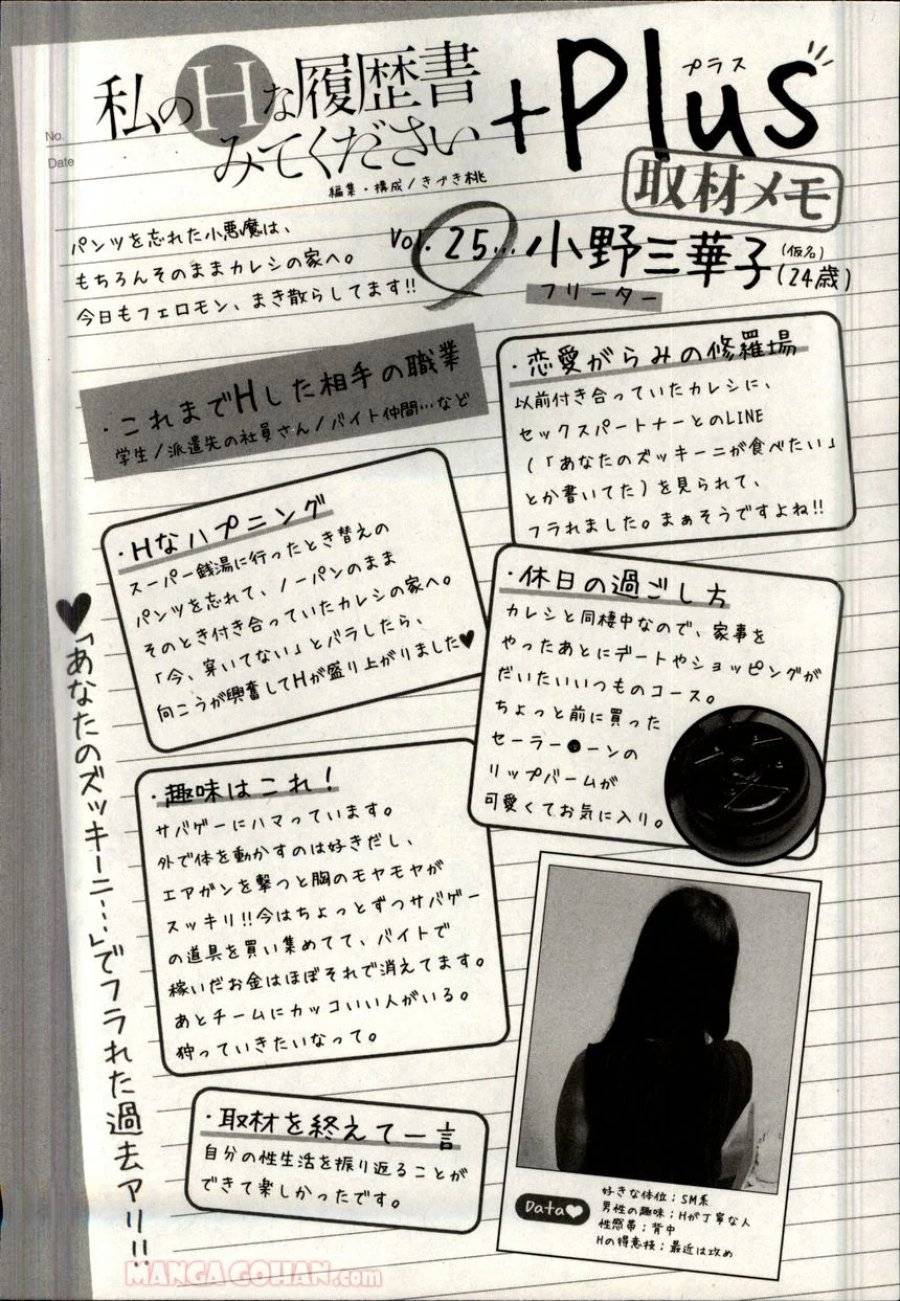 No.
Date
私のHな履歴書
みてください
+Plus
プラス
編集・構成/きづき桃
取材メモ
パンツを忘れた小悪魔は、
もちろんそのままカレシの家へ。
今日もフェロモン、まき散らしてます!!
Vol.25…
小野三華子
(仮名)
(24歳)
フリーター
・これまでHした相手の職業
学生/派遣先の社員さん/バイト仲間…など
・恋愛がらみの修羅場
以前付き合っていたカレシに、
セックスパートナーとのLINE
(「あなたのズッキーニが食べたい」
とか書いてた)を見られて、
フラれました。まぁそうですよね!!
・Hなハプニング
スーパー銭湯に行ったとき替えの
パンツを忘れて、ノーパンのまま
そのとき付き合っていたカレシの家へ。
「今、穿いてない」とバラしたら、
向こうが興奮してHが盛り上がりました♥
・休日の過ごし方
カレシと同棲中なので、家事を
やったあとにデートやショッピングが
だいたいいつものコース。
ちょっと前に買った
セーラー●ーンの
リップバームが
可愛くてお気に入り。
♥「あなたのズッキーニ…」でフラれた過去アリ!!
・趣味はこれ!
サバゲーにハマっています。
外で体を動かすのは好きだし、
エアガンを撃つと胸のモヤモヤが
スッキリ!!今はちょっとずつサバゲー
の道具を買い集めてて、バイトで
稼いだお金はほぼそれで消えてます。
あとチームにカッコいい人がいる。
狩っていきたいなって。
・取材を終えて一言
自分の性生活を振り返ることが
できて楽しかったです。
Data♥
好きな体位;SM系
男性の趣味;Hが丁寧な人
性感帯;背中
Hの得意技;最近は攻め
MANGAGOHAN.com